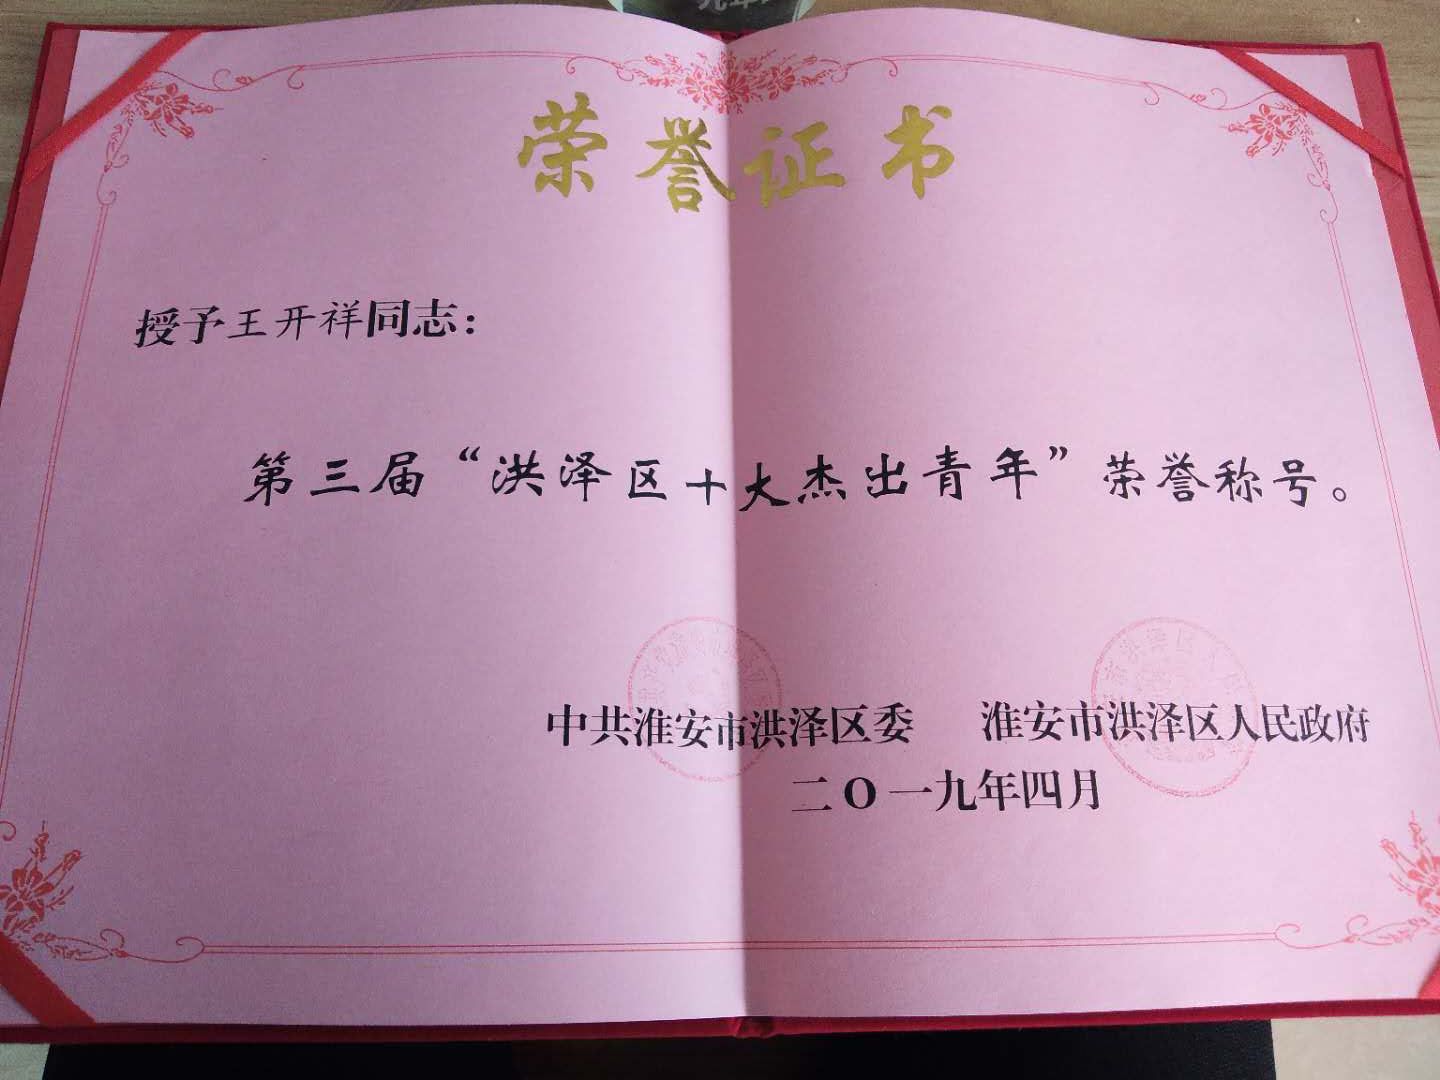 荣誉证书
授予王开祥同志：
第三届“洪泽区十大杰出青年”荣誉称号。
中共淮安市洪泽区委 淮安市洪泽区人民政府
二O一九年四月